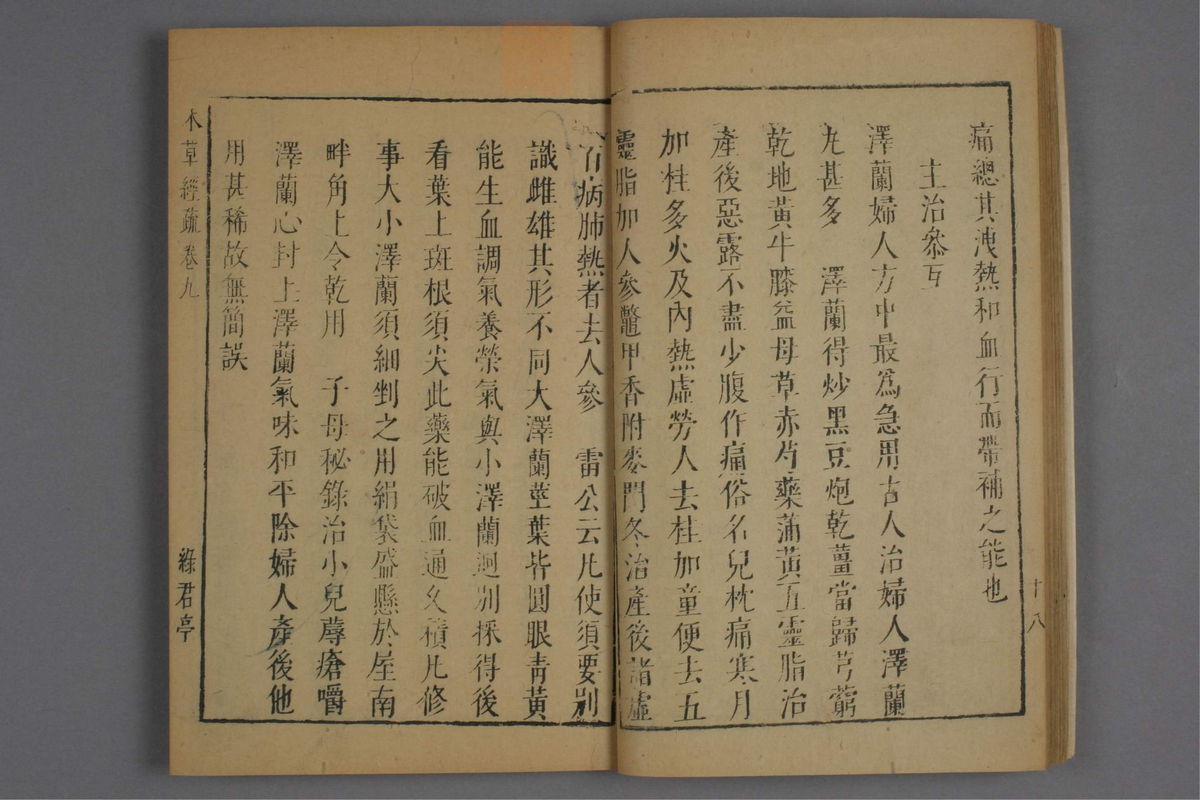 痛總其洩熱和血行而帶補之能也
主治叅互
澤蘭婦人方中最爲急用古人治婦人澤蘭
丸甚多　澤蘭得炒黑豆炮乾薑當歸芎藭
乾地黃牛膝益母草赤芍藥蒲黃五靈脂治
產後惡露不盡少腹作痛俗名兒枕痛寒月
加桂多火及內熱虛勞人去桂加童便去五
靈脂加人參鼈甲香附麥門冬治產後諸虛
百病肺熱者去人參　雷公云凡使須要別
識雌雄其形不同大澤蘭莖葉皆圓眼靑黃
能生血調氣養榮氣與小澤蘭迥別採得後
看葉上斑根須尖此藥能破血通久積凡修
事大小澤蘭須細剉之用絹袋盛懸於屋南
畔角上令乾用　子母秘錄治小兒蓐瘡嚼
澤蘭心封上澤蘭氣味和平除婦人產後他
用甚稀故無簡誤
本草經疏 卷九
綠君亭
十八